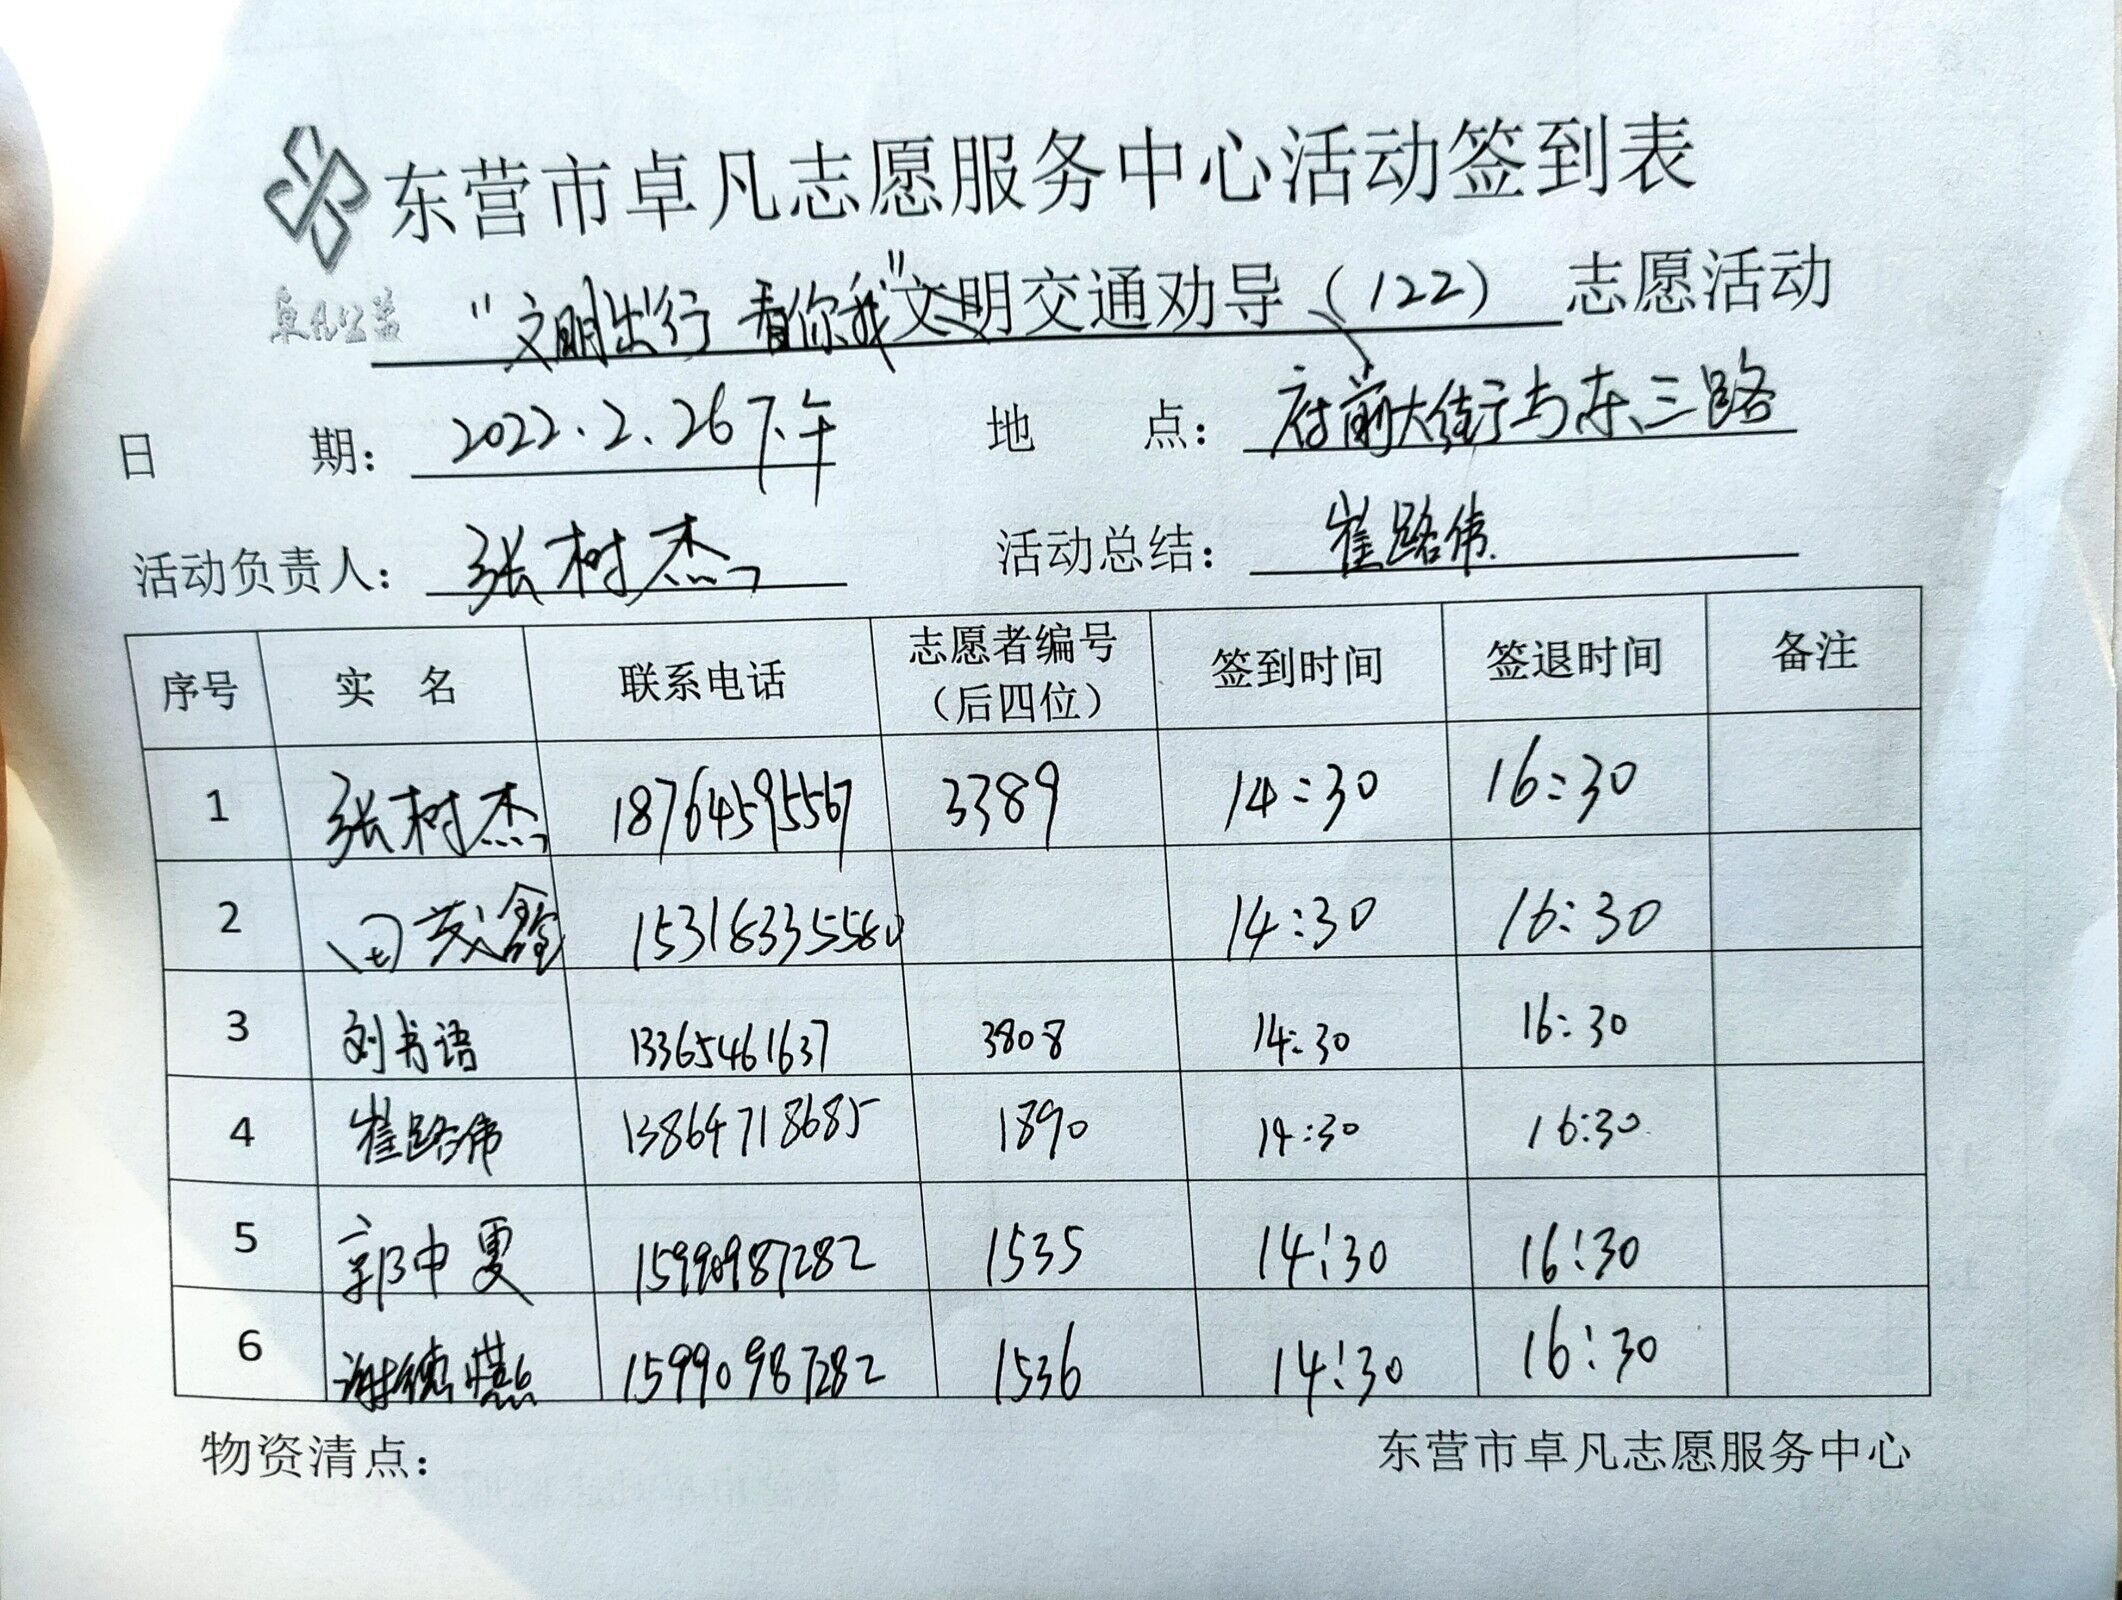 东营市卓凡志愿服务中心活动签到表
卓凡公益
"文明出行 看你我"文明交通劝导（122） 志愿活动
日 期： 2022.2.26下午 地 点： 府前大街与东三路
活动负责人： 张树杰 活动总结： 崔路伟
序号 实 名 联系电话 志愿者编号（后四位） 签到时间 签退时间 备注
1 张树杰 18764595567 3389 14:30 16:30
2 田茂鑫 15318335580 14:30 16:30
3 刘书语 13365461637 3808 14:30 16:30
4 崔路伟 13864718685 1890 14:30 16:30
5 郭中夏 15990987282 1535 14:30 16:30
6 谢德 15990987282 1536 14:30 16:30
物资清点： 东营市卓凡志愿服务中心